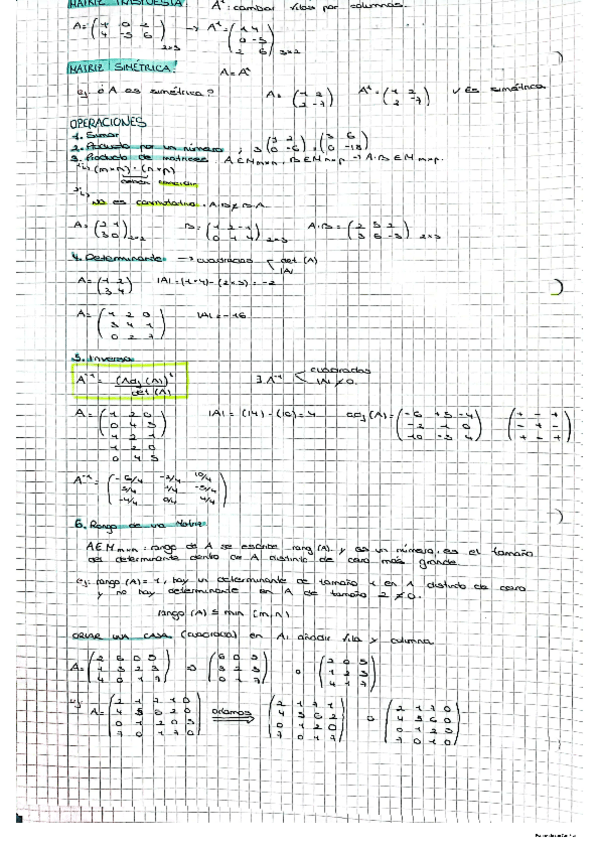 MATRIZ TRASPUESTA: Aᵗ: cambiar filas por columnas.
A = (1 0 2 / 4 -3 6) 2x3 → Aᵗ = (1 4 / 0 -3 / 2 6) 3x2
MATRIZ SIMÉTRICA: A = Aᵗ
ej. ¿A es simétrica? A = (1 2 / 2 -7) Aᵗ = (1 2 / 2 -7) ✓ Es simétrica
OPERACIONES
1. Sumar
2. Producto por un número ; 3 (3 2 / 0 -6) = (3 6 / 0 -18)
3. Producto de matrices A ∈ Mmxn, B ∈ Mnxp → A·B ∈ Mmxp.
(m×n) · (n×p)
es conmutativo. A·B ≠ B·A.
A = (2 1 / 3 0) 2x2 B = (1 2 -1 / 0 1 4) 2x3 A·B = (2 5 2 / 3 6 -3) 2x3
4. Determinante → cuadradas det (A)
|A|
A = (1 2 / 3 4) |A| = (1·4) - (2×3) = -2
A = (1 2 0 / 3 4 1 / 0 2 7) |A| = -16
5. Inversa
A⁻¹ = (Adj (A))ᵗ / det (A) ∃ A⁻¹ cuadradas
|A| ≠ 0.
A = (1 2 0 / 0 4 5 / 1 2 1) |A| = (14) - (10) = 4 adj (A) = (-6 +5 -4 / -2 1 0 / 10 -5 4) (+ - + / - + - / + - +)
1 2 0
0 4 5
A⁻¹ = (-6/4 -2/4 10/4 / 5/4 1/4 -5/4 / -4/4 0/4 4/4)
6. Rango de una Matriz
A ∈ Mmxn : rango de A se escribe rang (A). y es un número, es el tamaño
del determinante dentro de A distinto de cero más grande.
ej: rango (A) = 1, hay un determinante de tamaño 1 en A distinto de cero
y no hay determinante en A de tamaño 2 ≠ 0.
rango (A) ≤ min (m, n)
ORLAR UNA CAJA (cuadrada) en A: añadir fila y columna
A = (2 6 0 5 / 1 3 2 3 / 4 0 1 7) (6 0 5 / 3 2 3 / 0 1 7) o (2 0 5 / 1 2 3 / 4 1 7)
ej: A = (2 1 7 1 0 / 4 5 6 2 0 / 0 1 2 0 3 / 7 0 1 7 0) orlamos (2 1 7 1 / 4 5 6 2 / 0 1 2 0 / 7 0 1 7) o (2 1 7 0 / 4 5 6 0 / 0 1 2 3 / 7 0 1 0)